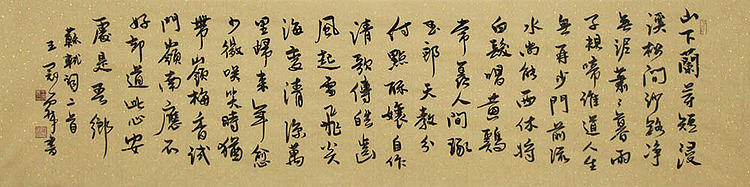 山下蘭芽短浸
溪松間沙路净
無泥蕭々暮雨
子規啼誰道人生
無再少門前流
水尚能西休將
白髮唱黄鷄
常羨人間琢
玉郎天教分
付點酥孃自作
清歌傳皓齒
風起雪飛炎
海變清涼萬
里歸來年愈
少微笑笑時猶
帶嶺梅香試
問嶺南應不
好却道此心安
處是吾鄉
蘇軾詞二首
王 書